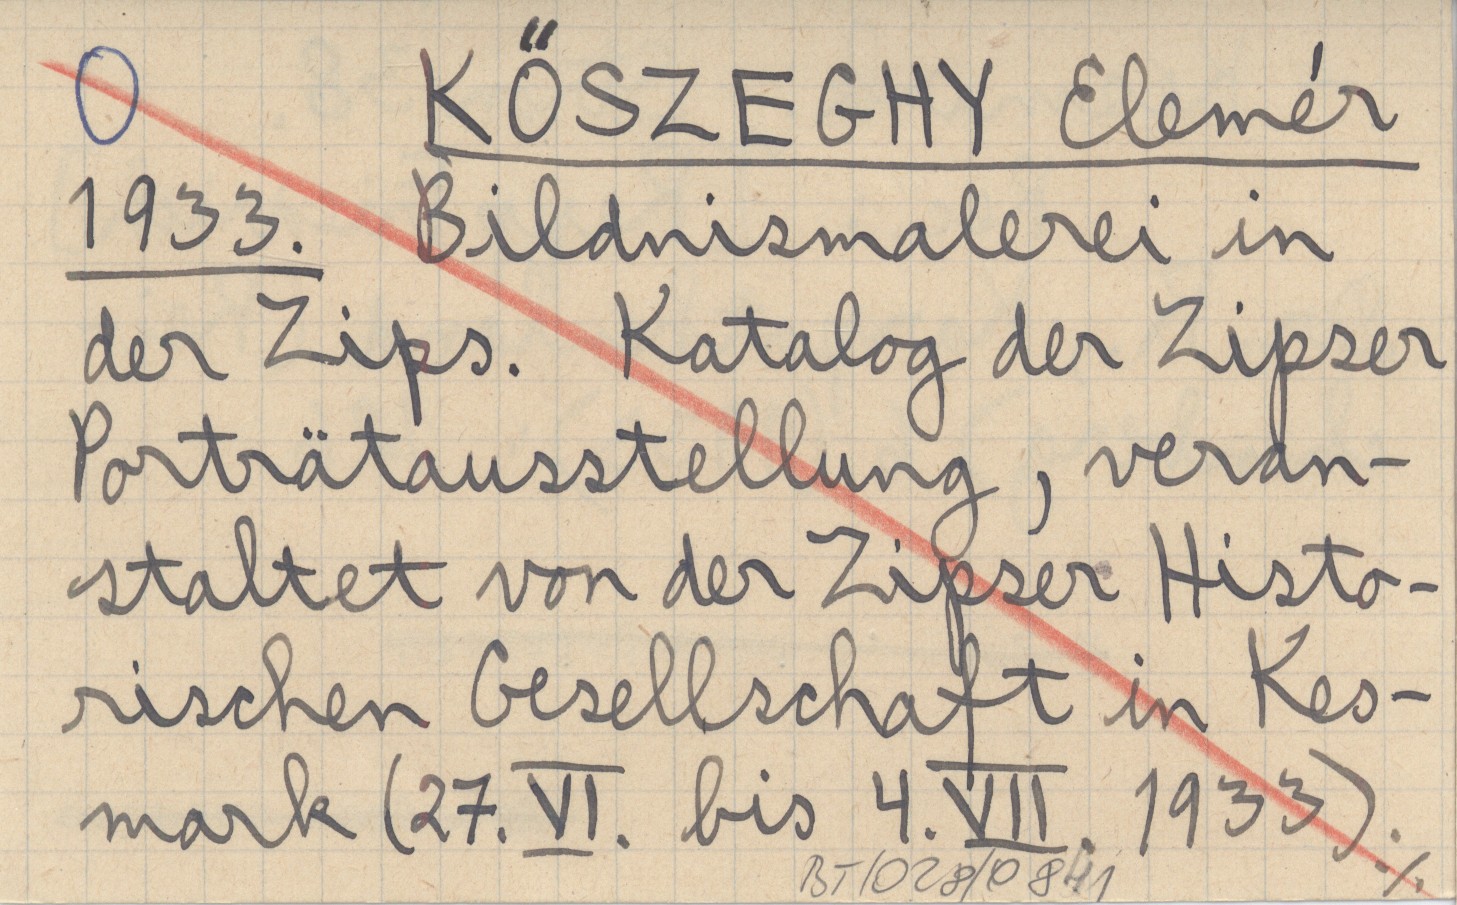 KŐSZEGHY Elemér
1933. Bildnismalerei in
der Zips. Katalog der Zipser
Porträtausstellung, veran-
staltet von der Zipser Histo-
rischen Gesellschaft in Kes-
mark (27. VI. bis 4. VII. 1933).
·/.